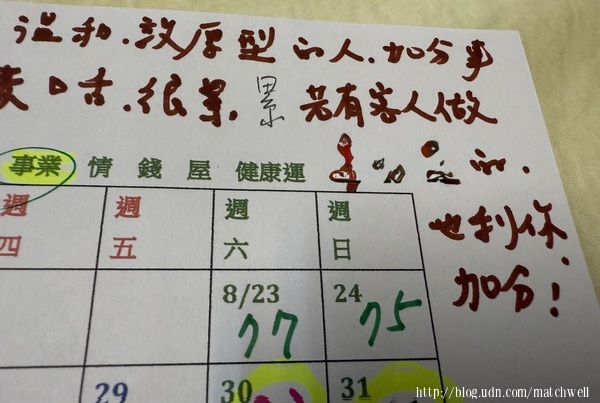 溫和.敦厚型的人.加分事
口舌.很累.累 若有客人做
事業 情 錢 屋 健康運
的.
也利你
加分!
週 週 週 週
四 五 六 日
8/23 24
77 75
29 30 31
http://blog.udn.com/matchwell